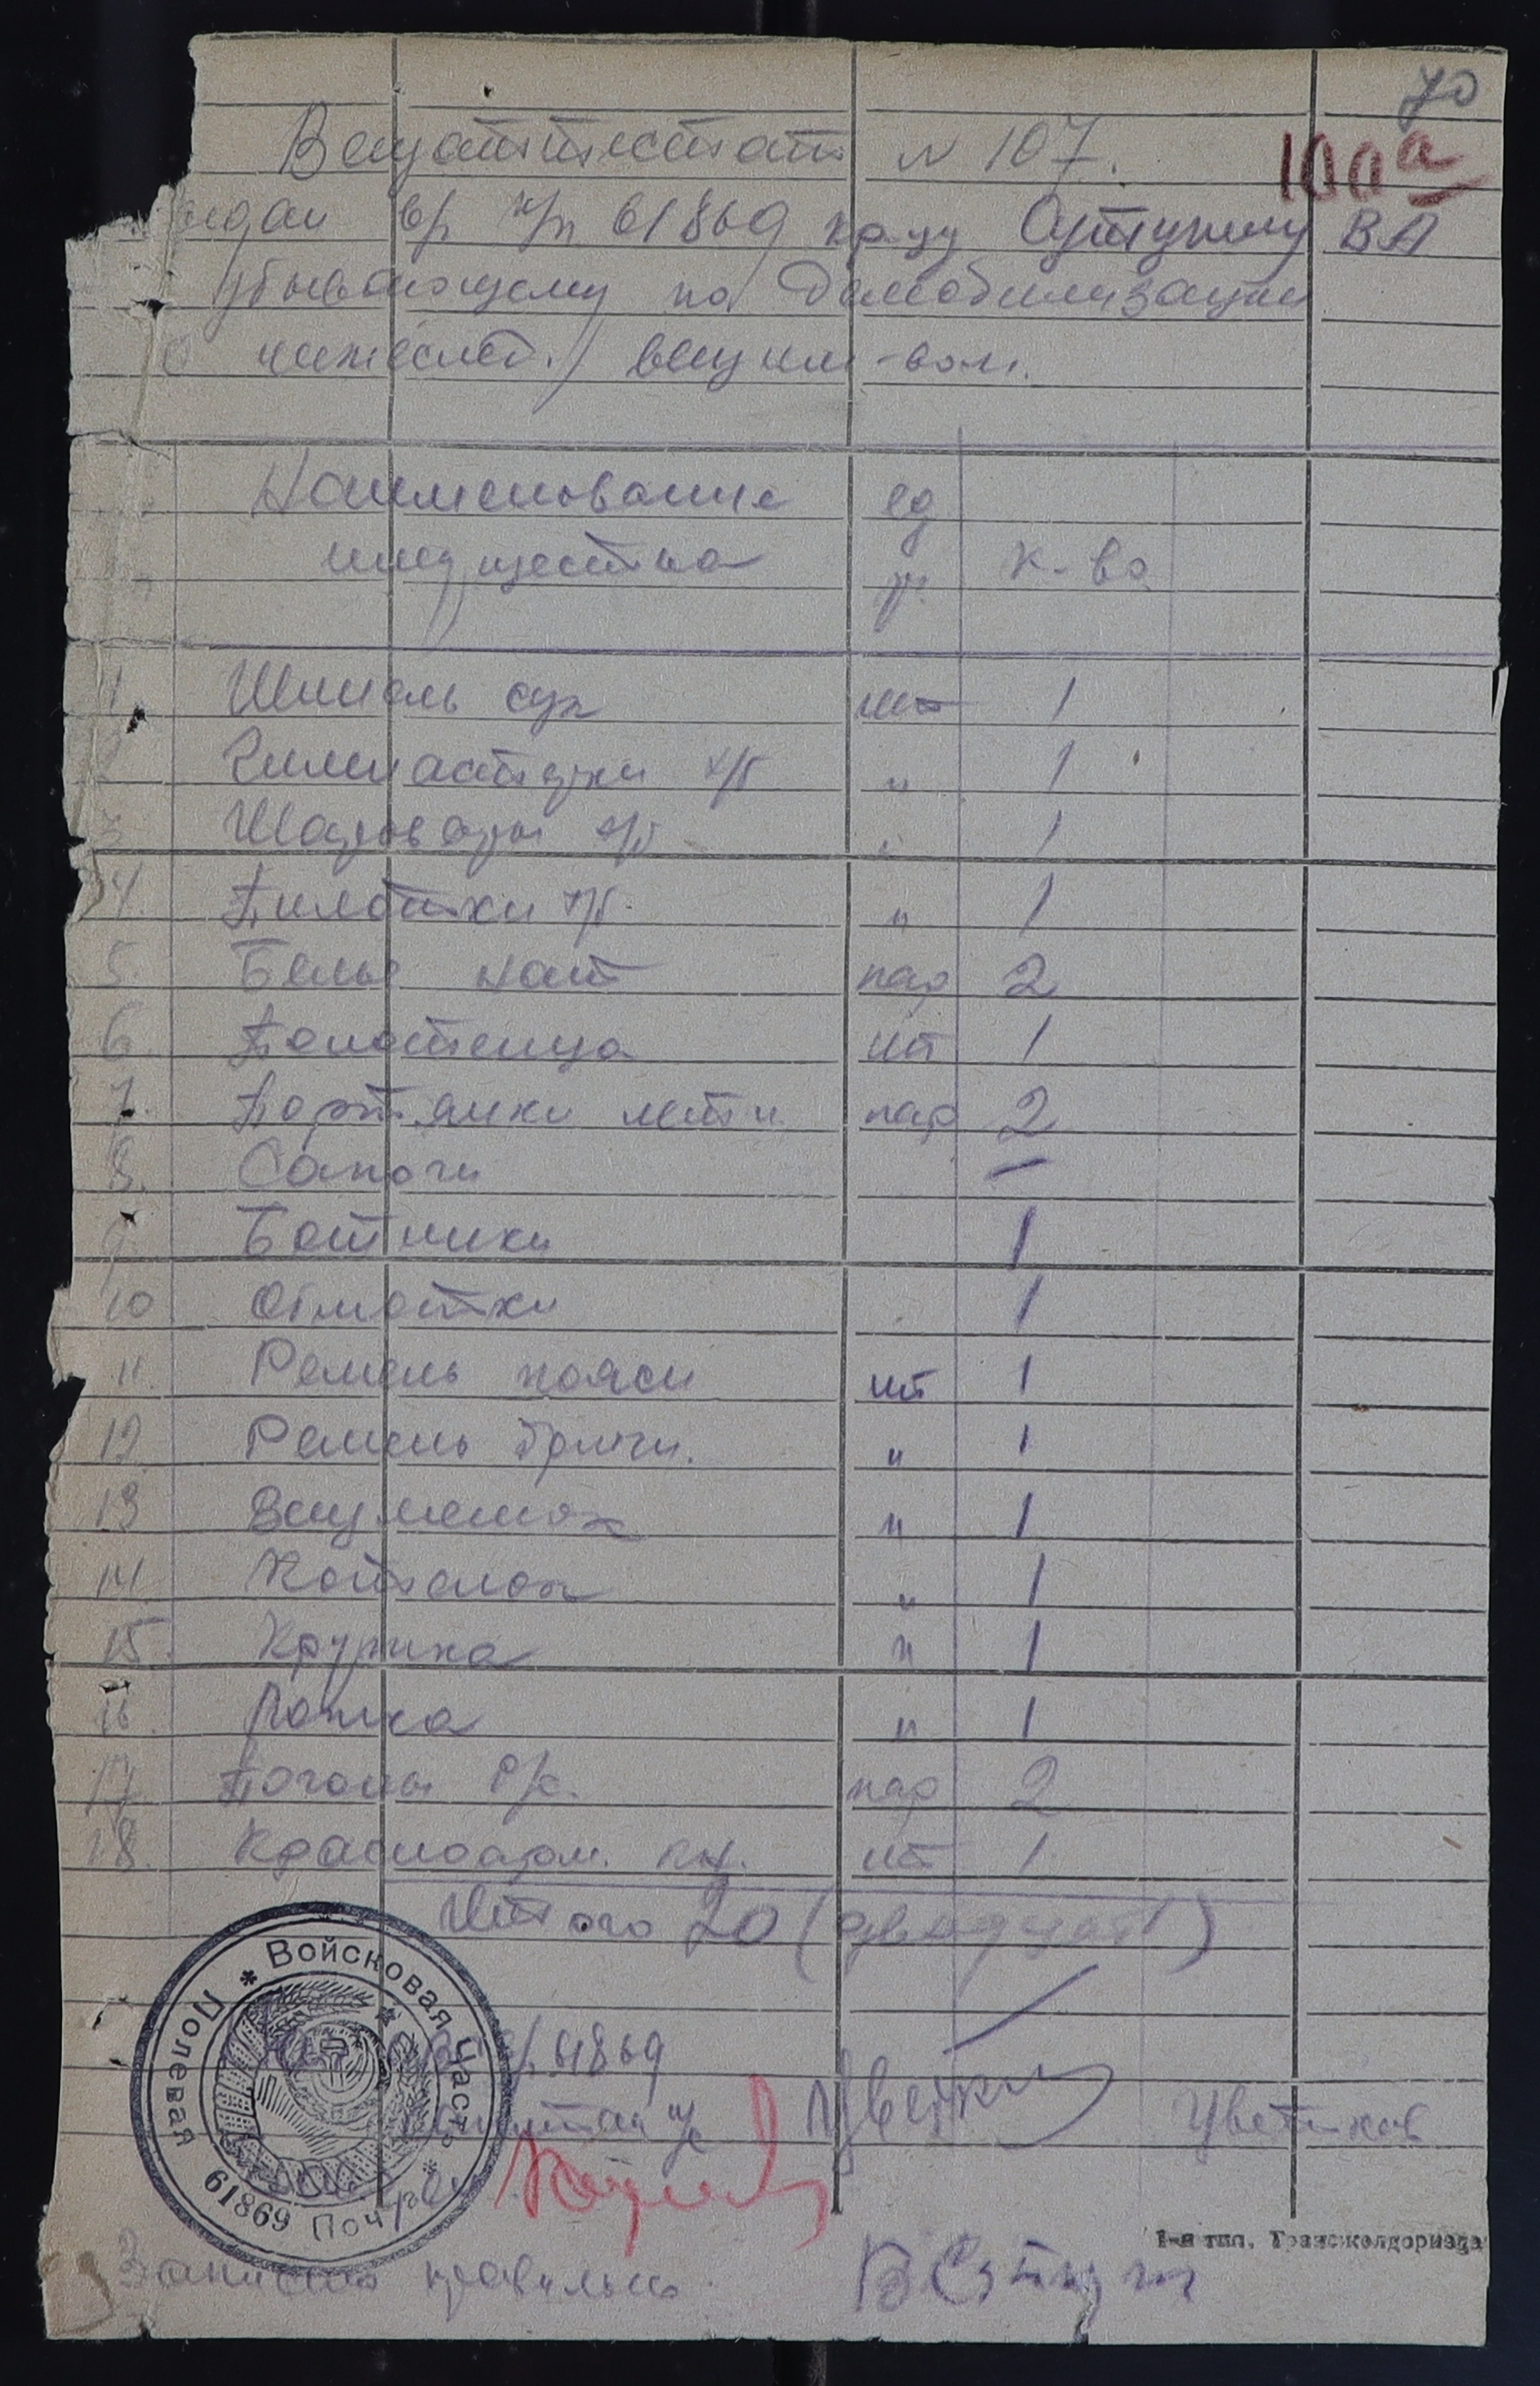 70
100а
Вещаттестат № 107.
Выдан в/ч п/п 61869 кр-цу Сутугину ВА
убывающему по демобилизации
о нижеслед. вещ им-вом.
Наименование ед
имущества р. к-во
1. Шинель сук шт 1
2 Гимнастерки х/б " 1
3 Шаровары х/б " 1
4. Пилотки х/б. " 1
5. Белье нат пар 2
6. Полотенца шт 1
7. Портянки летн. пар 2
8. Сапоги —
9. Ботинки 1
10 Обмотки 1
11. Ремень поясн шт 1
12. Ремень брючн. " 1
13 Вещмешок " 1
14. Котелок " 1
15. Кружка " 1
16. Ложка " 1
17. Погоны р/с. пар 2
18. Красноарм. кн. шт 1
Итого 20 (двадцать)
61869
Капитан и/с Цветков
Войсковая Часть * Полевая Почта * 61869
1-я тип. Трансжелдориздата
Записано правильно